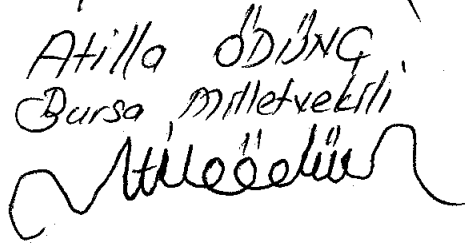 Atilla ÖDÜNÇ
Bursa Milletvekili